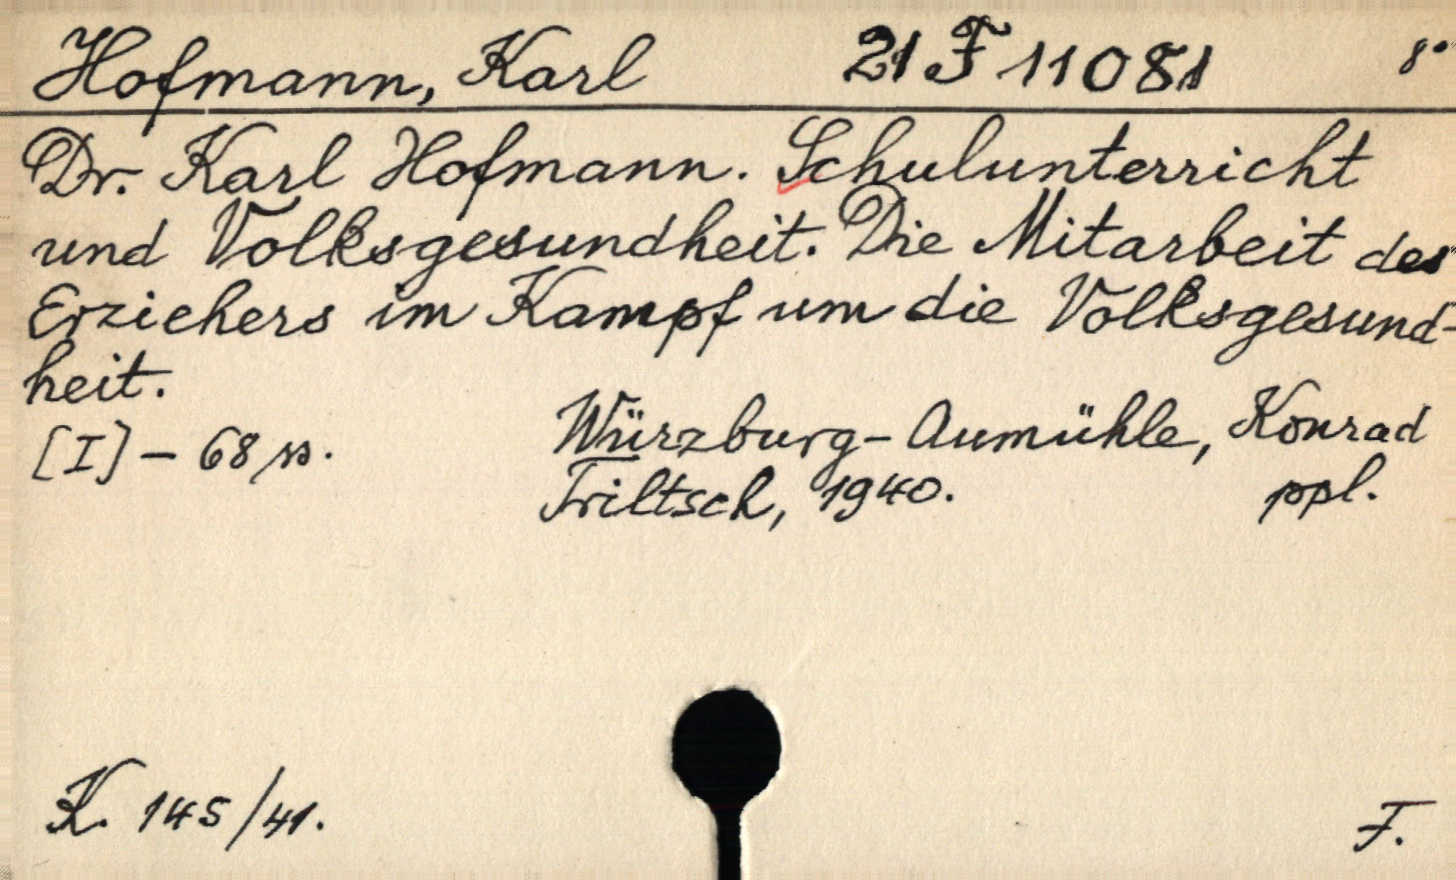 Hofmann, Karl 21 F 11081 8°
Dr. Karl Hofmann. Schulunterricht
und Volksgesundheit. Die Mitarbeit des
Erziehers im Kampf um die Volksgesund-
heit.
[I] - 68 ss. Würzburg-Aumühle, Konrad
Triltsch, 1940. ppl.
K. 145/41. F.